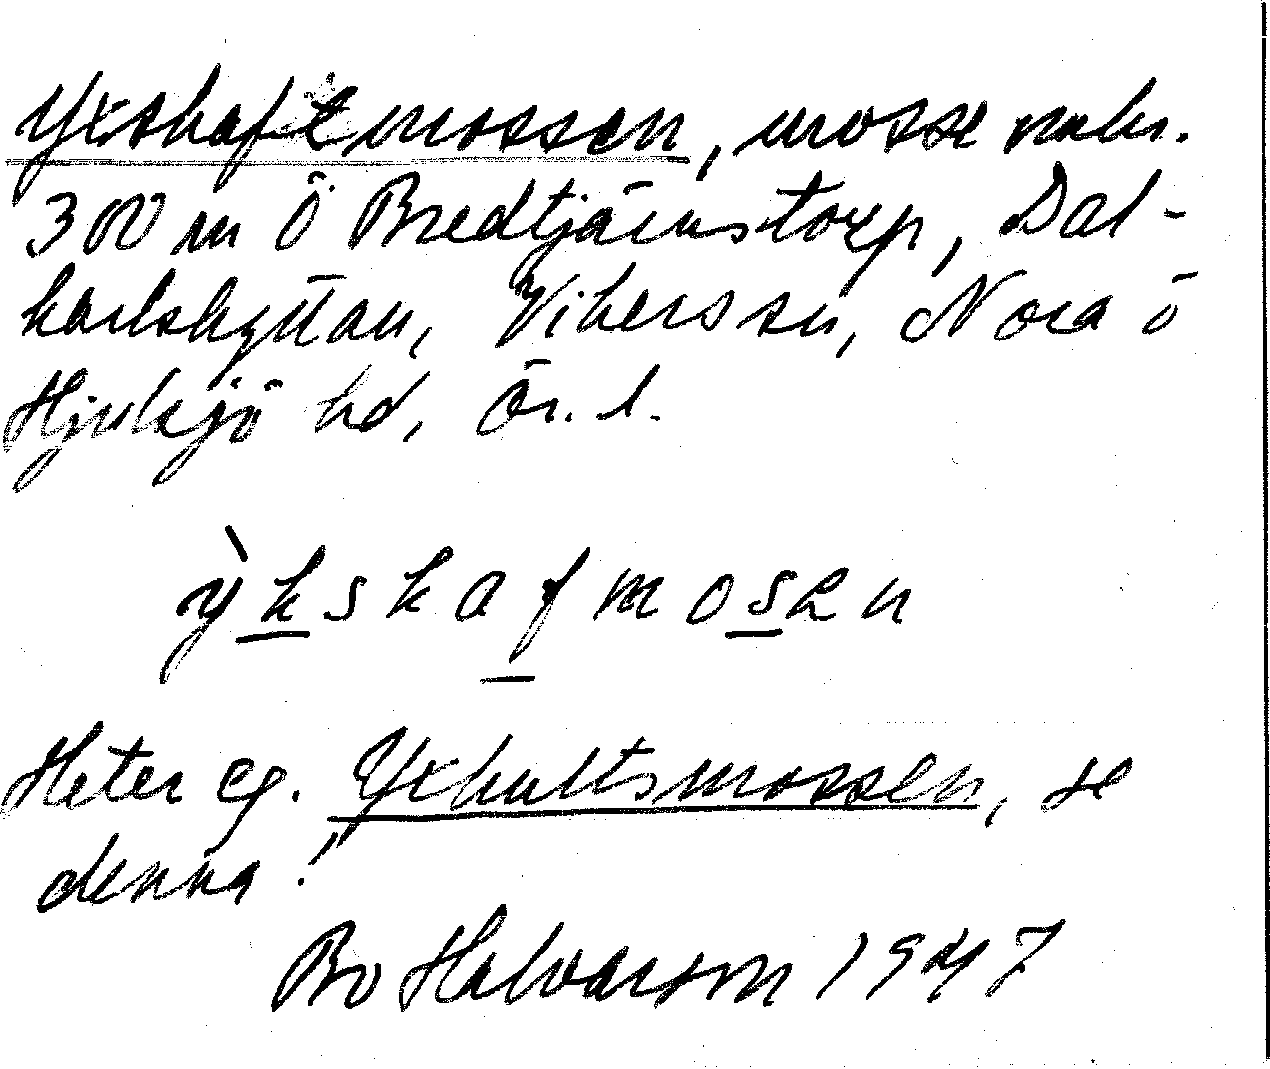 Yxskaftmossen, mosse
300 m Ö Bredtjärnstorp, Dal-
karlshyttan, Vikers sn, Nora ö
Hjulsjö hd, Ör. l.
ỳkskafmosen
Heter eg. Yxhultsmossen, se
denna!
Bo Halvarson 1947